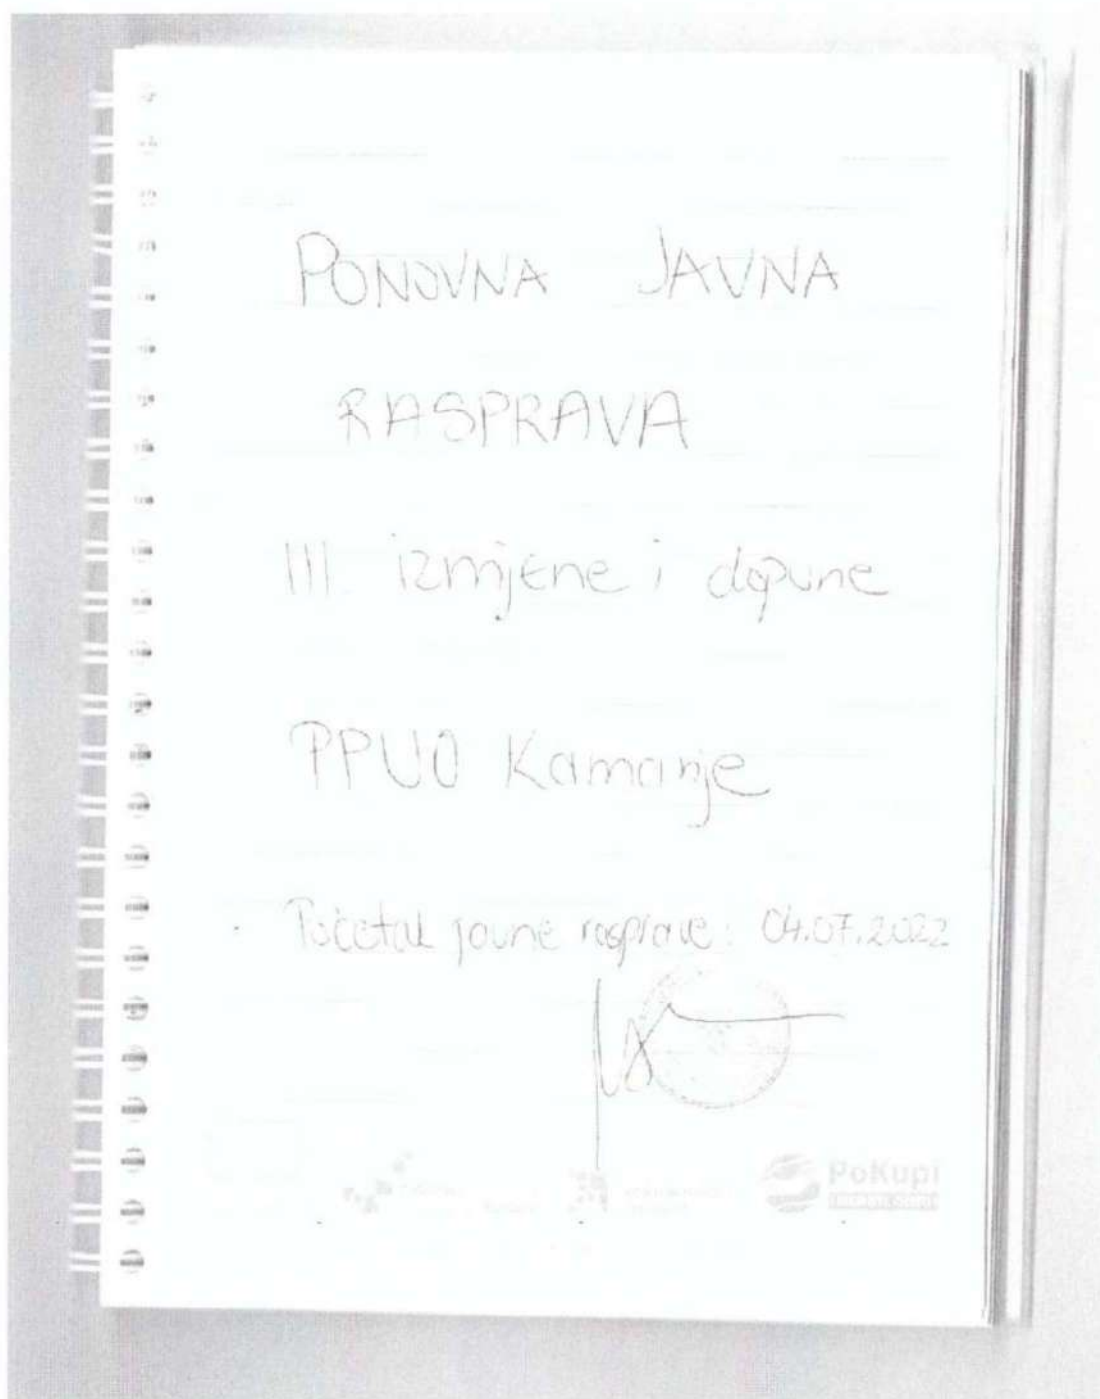 PONOVNA JAVNA
RASPRAVA
III. izmjene i dopune
PPUO Kamanje
Početak javne rasprave: 04.07.2022
PoKupi